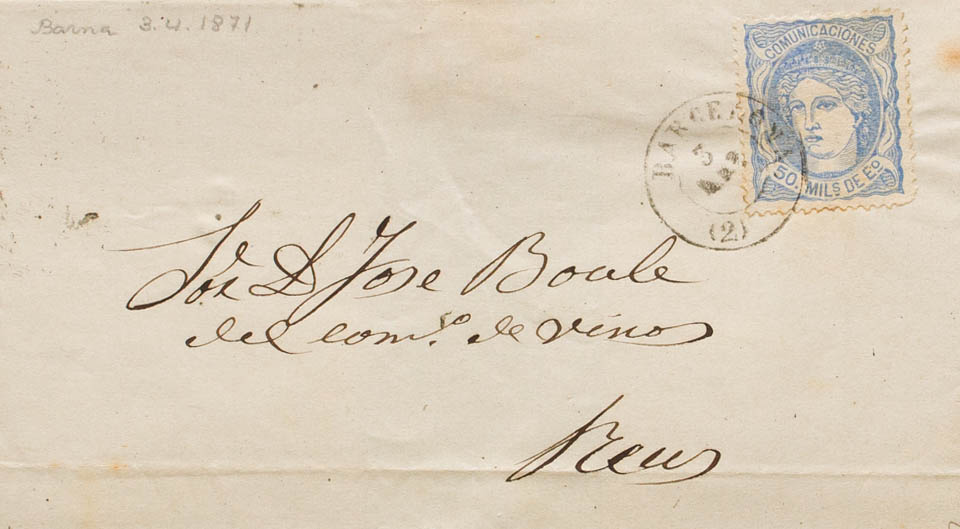 Barna 3.4.1871
COMUNICACIONES
50. MILS DE Eº
BARCELONA
3
(2)
Sor D. Jose Boule
del comº. de vinos
Reus